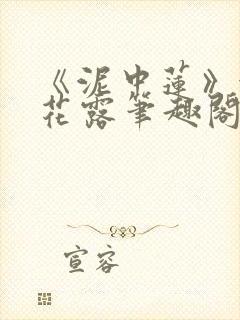 《泥中莲》
花露笔趣阁
宣容